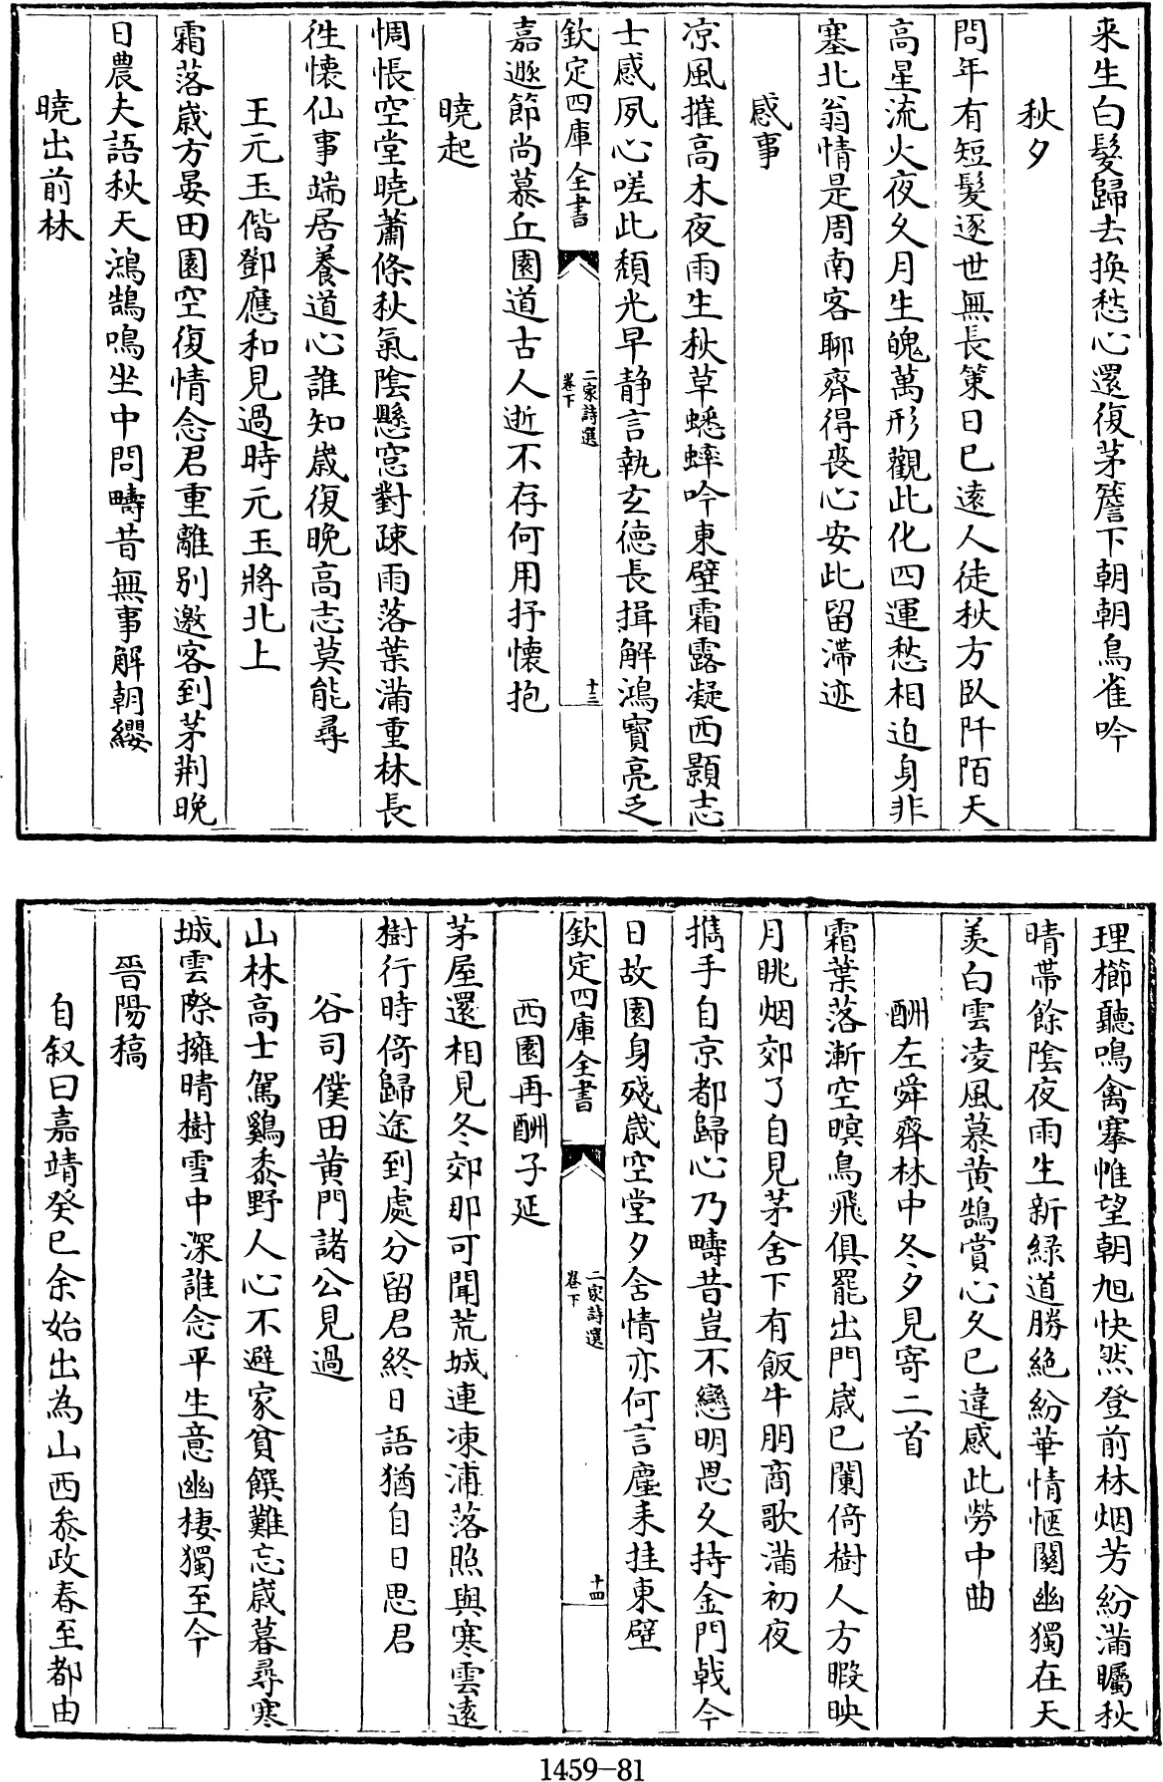 来生白髪歸去換愁心還復茅簷下朝朝鳥雀吟
秋夕
問年有短髪逐世無長策日已遠人徒秋方臥阡陌天
高星流火夜久月生魄萬形觀此化四運愁相迫身非
塞北翁情是周南客聊齊得喪心安此留滯迹
感事
凉風摧高木夜雨生秋草蟋蟀吟東壁霜露凝西顥志
士感夙心嗟此頽光早静言執玄徳長揖解鴻寶亮乏
欽定四庫全書
二家詩選
卷下
十三
嘉遯節尚慕丘園道古人逝不存何用抒懐抱
曉起
惆悵空堂曉蕭條秋氣陰懸窓對疎雨落葉滿重林長
徃懐仙事端居養道心誰知嵗復晚高志莫能尋
王元玉偕鄧應和見過時元玉將北上
霜落嵗方晏田園空復情念君重離别邀客到茅荆晚
日農夫語秋天鴻鵠鳴坐中問疇昔無事解朝纓
曉出前林
理櫛聽鳴禽搴帷望朝旭快然登前林烟芳紛滿矚秋
晴帶餘陰夜雨生新緑道勝絶紛華情愜闗幽獨在天
羡白雲凌風慕黄鵠賞心久已違感此勞中曲
酬左舜齊林中冬夕見寄二首
霜葉落漸空暝鳥飛俱罷出門嵗已闌倚樹人方暇映
月眺烟郊了自見茅舍下有飯牛朋商歌滿初夜
攜手自京都歸心乃疇昔豈不戀明恩久持金門戟今
日故園身殘嵗空堂夕含情亦何言塵耒挂東壁
欽定四庫全書
二家詩選
卷下
十四
西園再酬子延
茅屋還相見冬郊那可聞荒城連凍浦落照與寒雲遠
樹行時倚歸途到處分留君終日語猶自日思君
谷司僕田黄門諸公見過
山林高士駕鷄黍野人心不避家貧饌難忘嵗暮尋寒
城雲際擁晴樹雪中深誰念平生意幽棲獨至今
晉陽稿
自叙曰嘉靖癸巳余始出為山西叅政春至都由
1459-81